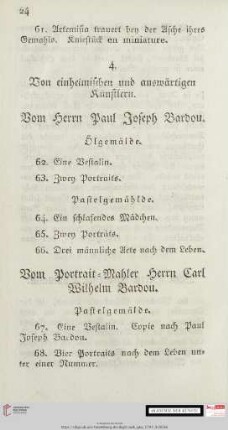 24
61. Artemisia trauert bey der Asche ihres
Gemahls. Kniestück en miniature.
4.
Von einheimischen und auswärtigen
Künstlern.
Vom Herrn Paul Joseph Bardou.
Ölgemälde.
62. Eine Vestalin.
63. Zwey Portraits.
Pastelgemählde.
64. Ein schlafendes Mädchen.
65. Zwey Porträts.
66. Drei männliche Acte nach dem Leben.
Vom Portrait-Mahler Herrn Carl
Wilhelm Bardou.
Pastelgemälde.
67. Eine Vestalin. Copie nach Paul
Joseph Bardou.
68. Vier Portraits nach dem Leben un-
ter einer Nummer.